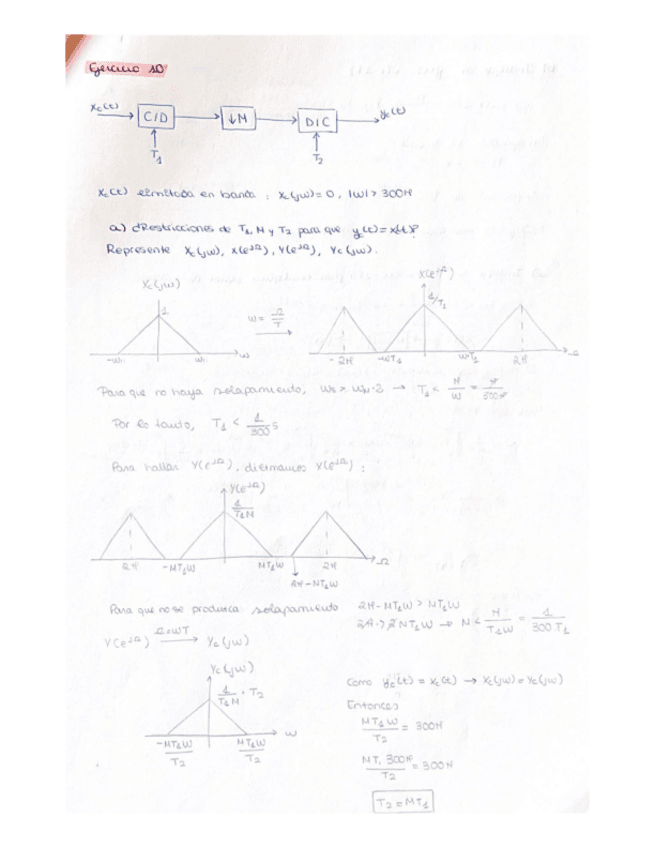 Ejercicio 10
xc(t) C/D ↓M D/C yc(t)
T1 T2
xc(t) limitada en banda : Xc(jw) = 0, |w| > 300π
a) ¿Restricciones de T1, M y T2 para que yc(t) = xc(t)?
Represente Xc(jw), X(e^jΩ), Y(e^jΩ), Yc(jw).
Xc(jw) X(e^jΩ)
1 w = Ω/T 1/T1
-w w w -2π -wT1 wT1 2π Ω
Para que no haya solapamiento, ws > wM·2 → T1 < π/W = π/300π
Por lo tanto, T1 < 1/300 s
Para hallar Y(e^jΩ), diezmamos X(e^jΩ) :
Y(e^jΩ)
1/T1M
2π -MT1W MT1W 2π Ω
2π-MT1W
Para que no se produzca solapamiento 2π - MT1W > MT1W
2π > 2MT1W → M < π/T1W = 1/300T1
Y(e^jΩ) Ω=wT → Yc(jw)
Yc(jw)
1/T1M · T2
-MT1W/T2 MT1W/T2 w
Como yc(t) = xc(t) → Xc(jw) = Yc(jw)
Entonces
MT1W/T2 = 300π
MT1 300π/T2 = 300π
T2 = MT1